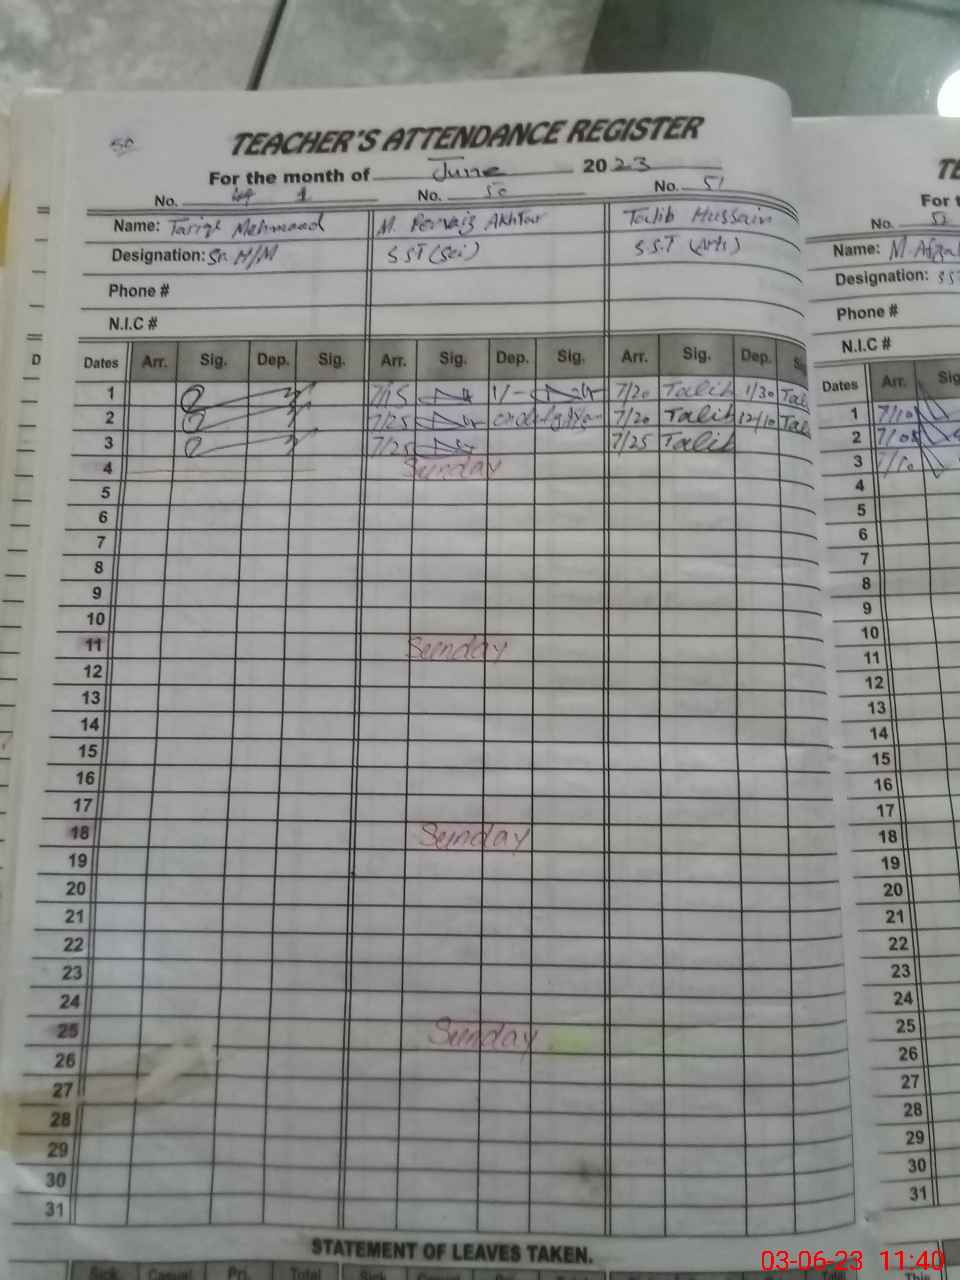 50
TEACHER'S ATTENDANCE REGISTER
For the month of June 2023
No. 1 No. 50 No. 51
Name: Tariq Mehmood M. Pervaiz Akhtar Talib Hussain
Designation: Sr. H/M SST (Sci) S.S.T (Arts)
Phone #
N.I.C #
Dates Arr. Sig. Dep. Sig. Arr. Sig. Dep. Sig. Arr. Sig. Dep.
1 7/15 1/- 7/20 Talib 1/30 Tal
2 7/25 7/20 Talib 12/10 Tal
3 7/25 7/25 Talib
4 Sunday
5
6
7
8
9
10
11 Sunday
12
13
14
15
16
17
18 Sunday
19
20
21
22
23
24
25 Sunday
26
27
28
29
30
31
STATEMENT OF LEAVES TAKEN.
Sick Casual Pri. Total Sick
TE
For t
No. 52
Name: M. Afzal
Designation: SS
Phone #
N.I.C #
Dates Arr. Sig
1 7/10
2 7/05
3
4
5
6
7
8
9
10
11
12
13
14
15
16
17
18
19
20
21
22
23
24
25
26
27
28
29
30
31
D
03-06-23 11:40